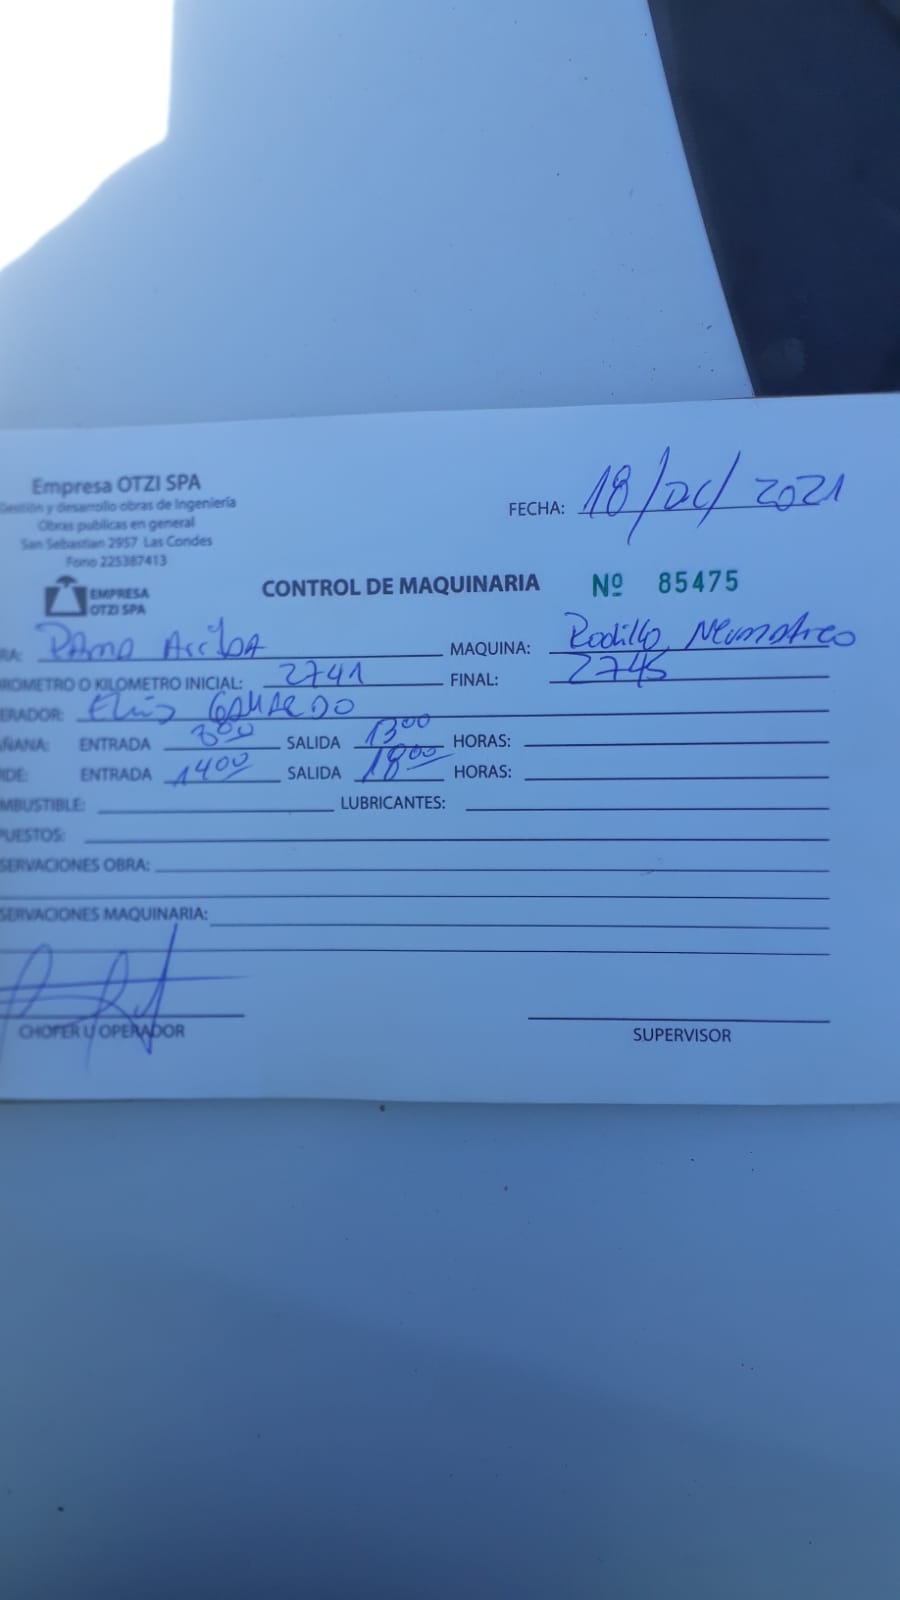 Empresa OTZI SPA
Gestión y desarrollo obras de Ingeniería
Obras publicas en general
San Sebastian 2957 Las Condes
Fono 225387413
EMPRESA
OTZI SPA
FECHA: 18/DIC/2021
CONTROL DE MAQUINARIA Nº 85475
RA: PAMA ArribA MAQUINA: Rodillo Neumatico
ROMETRO O KILOMETRO INICIAL: 2741 FINAL: 2745
ERADOR: Elias GALLARDO
AÑANA: ENTRADA 800 SALIDA 1300 HORAS:
RDE: ENTRADA 1400 SALIDA 1800 HORAS:
MBUSTIBLE: LUBRICANTES:
PUESTOS:
SERVACIONES OBRA:
SERVACIONES MAQUINARIA:
CHOFER U OPERADOR
SUPERVISOR